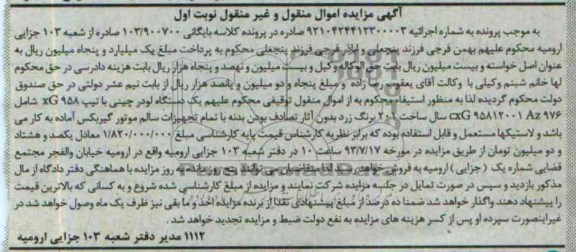 آگهی مزایده اموال منقول و غیر منقول نوبت اول
به موجب پرونده به شماره اجرائیه ۹۲۱۰۴۲۴۴۱۲۳۰۰۰۰۳ صادره در پرونده کلاسه بایگانی ۱۰۳/۹۰۰۷۰۰ صادره از شعبه ۱۰۳ جزایی
ارومیه محکوم علیهم بهمن فرجی فرزند پنجعلی و فرجی فرزند پنجعلی محکوم به پرداخت مبلغ یک میلیارد و پنجاه میلیون ریال به
عنوان اصل خواسته و بیست میلیون ریال بابت حق الوکاله وکیل و بیست میلیون و نهصد و پنجاه هزار ریال بابت هزینه دادرسی در حق محکوم
لها خانم شبنم وکیلی با وکالت آقای رضا زاده و مبلغ پنجاه و دو میلیون و پانصد هزار ریال از بابت نیم عشر دولتی در حق صندوق
دولت محکوم گردیده لذا به منظور استیفاء محکوم به از اموال منقول توقیفی محکوم علیهم یک دستگاه لودر چینی با تیپ xG ۹۵۸ شامل
cxG ۹۵۸۱۲۰۰۱ Az ۹۷۶ سال ساخت برنگ زرد بدون آثار تصادف بودن بدنه با تمام تجهیزات سالم موتور گیربکس آماده به کار می
باشد و لاستیکها مستعمل و قابل استفاده بوده که برابر نظریه کارشناس قیمت پایه کارشناسی مبلغ ۱/۸۲۰/۰۰۰/۰۰۰ معادل یکصد و هشتاد
و دو میلیون تومان از طریق مزایده در مورخه ۹۳/۷/۱۷ ساعت ۱۰ در دفتر شعبه ۱۰۳ جزایی ارومیه واقع در ارومیه خیابان والفجر مجتمع
قضایی شماره یک (جزایی) ارومیه به فروش روز مزایده با هماهنگی دفتر دادگاه از مال
مذکور بازدید و سپس در صورت تمایل در جلسه مزایده شرکت نمایند و مزایده از مبلغ کارشناسی شده شروع و به کسانی که بالاترین قیمت
را پیشنهاد دهند واگذار خواهد شد ضمنا ده درصد از مبلغ پیشنهادی نقدا از برنده مزایده اخذ و ما بقی نیز ظرف یک ماه وصول خواهد شد در
غیر اینصورت سپرده او پس از کسر هزینه های مزایده به نفع دولت ضبط و مزایده تجدید خواهد شد.
۱۱۱۲ مدیر دفتر شعبه ۱۰۳ جزایی ارومیه